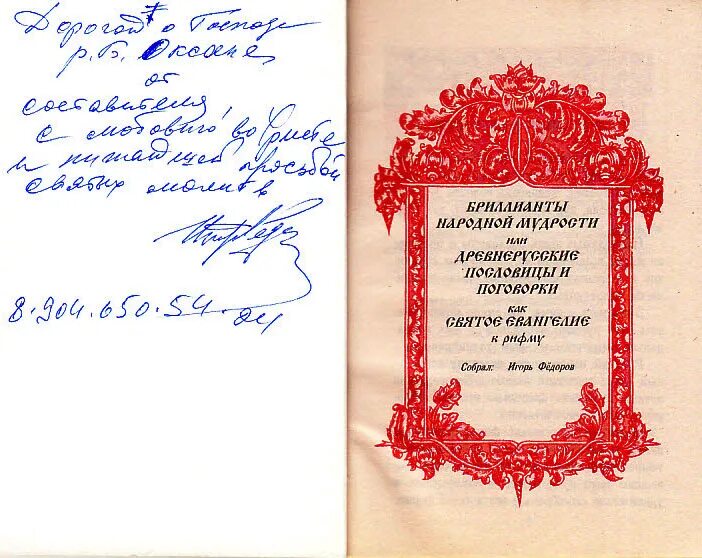 Дорогой о Господе
р. Б. Оксане
от
составителя,
с любовию во Христе
и
святых молитв
8.904.650.54.04
БРИЛЛИАНТЫ
НАРОДНОЙ МУДРОСТИ
или
ДРЕВНЕРУССКИЕ
ПОСЛОВИЦЫ И
ПОГОВОРКИ
как
СВЯТОЕ ЕВАНГЕЛИЕ
в рифму
Собрал: Игорь Фёдоров